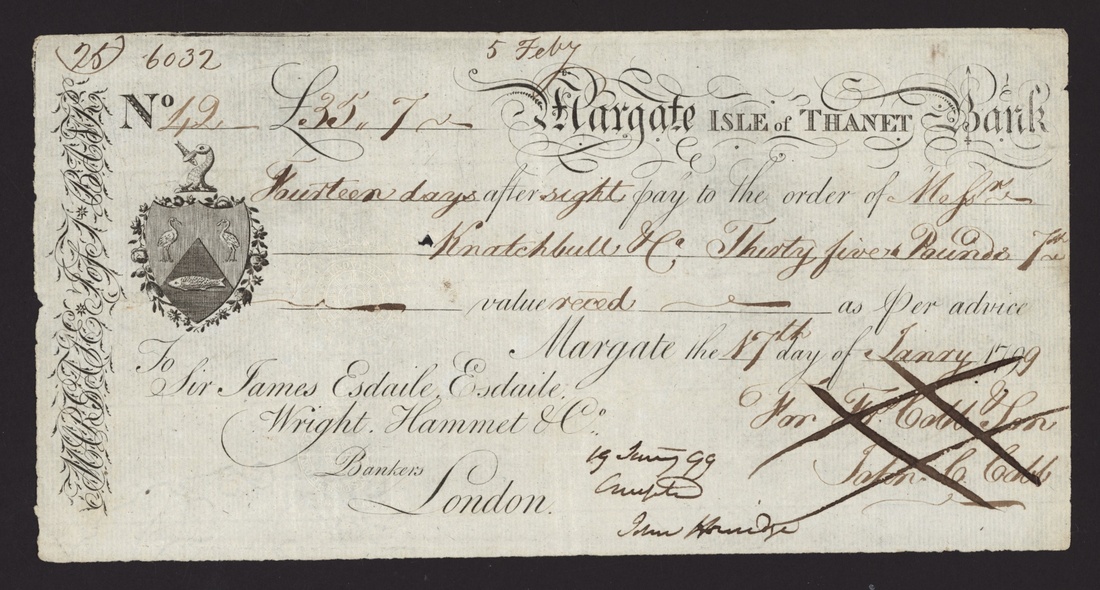 (25) 6032 5 Feby
No 42 £35,, 7 Margate ISLE of THANET Bank
Fourteen days after sight pay to the order of Messrs
Knatchbull & Co Thirty five Pounds 7
value reced as per advice
Margate the 17th day of Janry 1799
To
Sir James Esdaile, Esdaile,
Wright, Hammet & Co.
Bankers
London.
For Fs Cobb & Son
John C Cobb
19 Janry 99
John